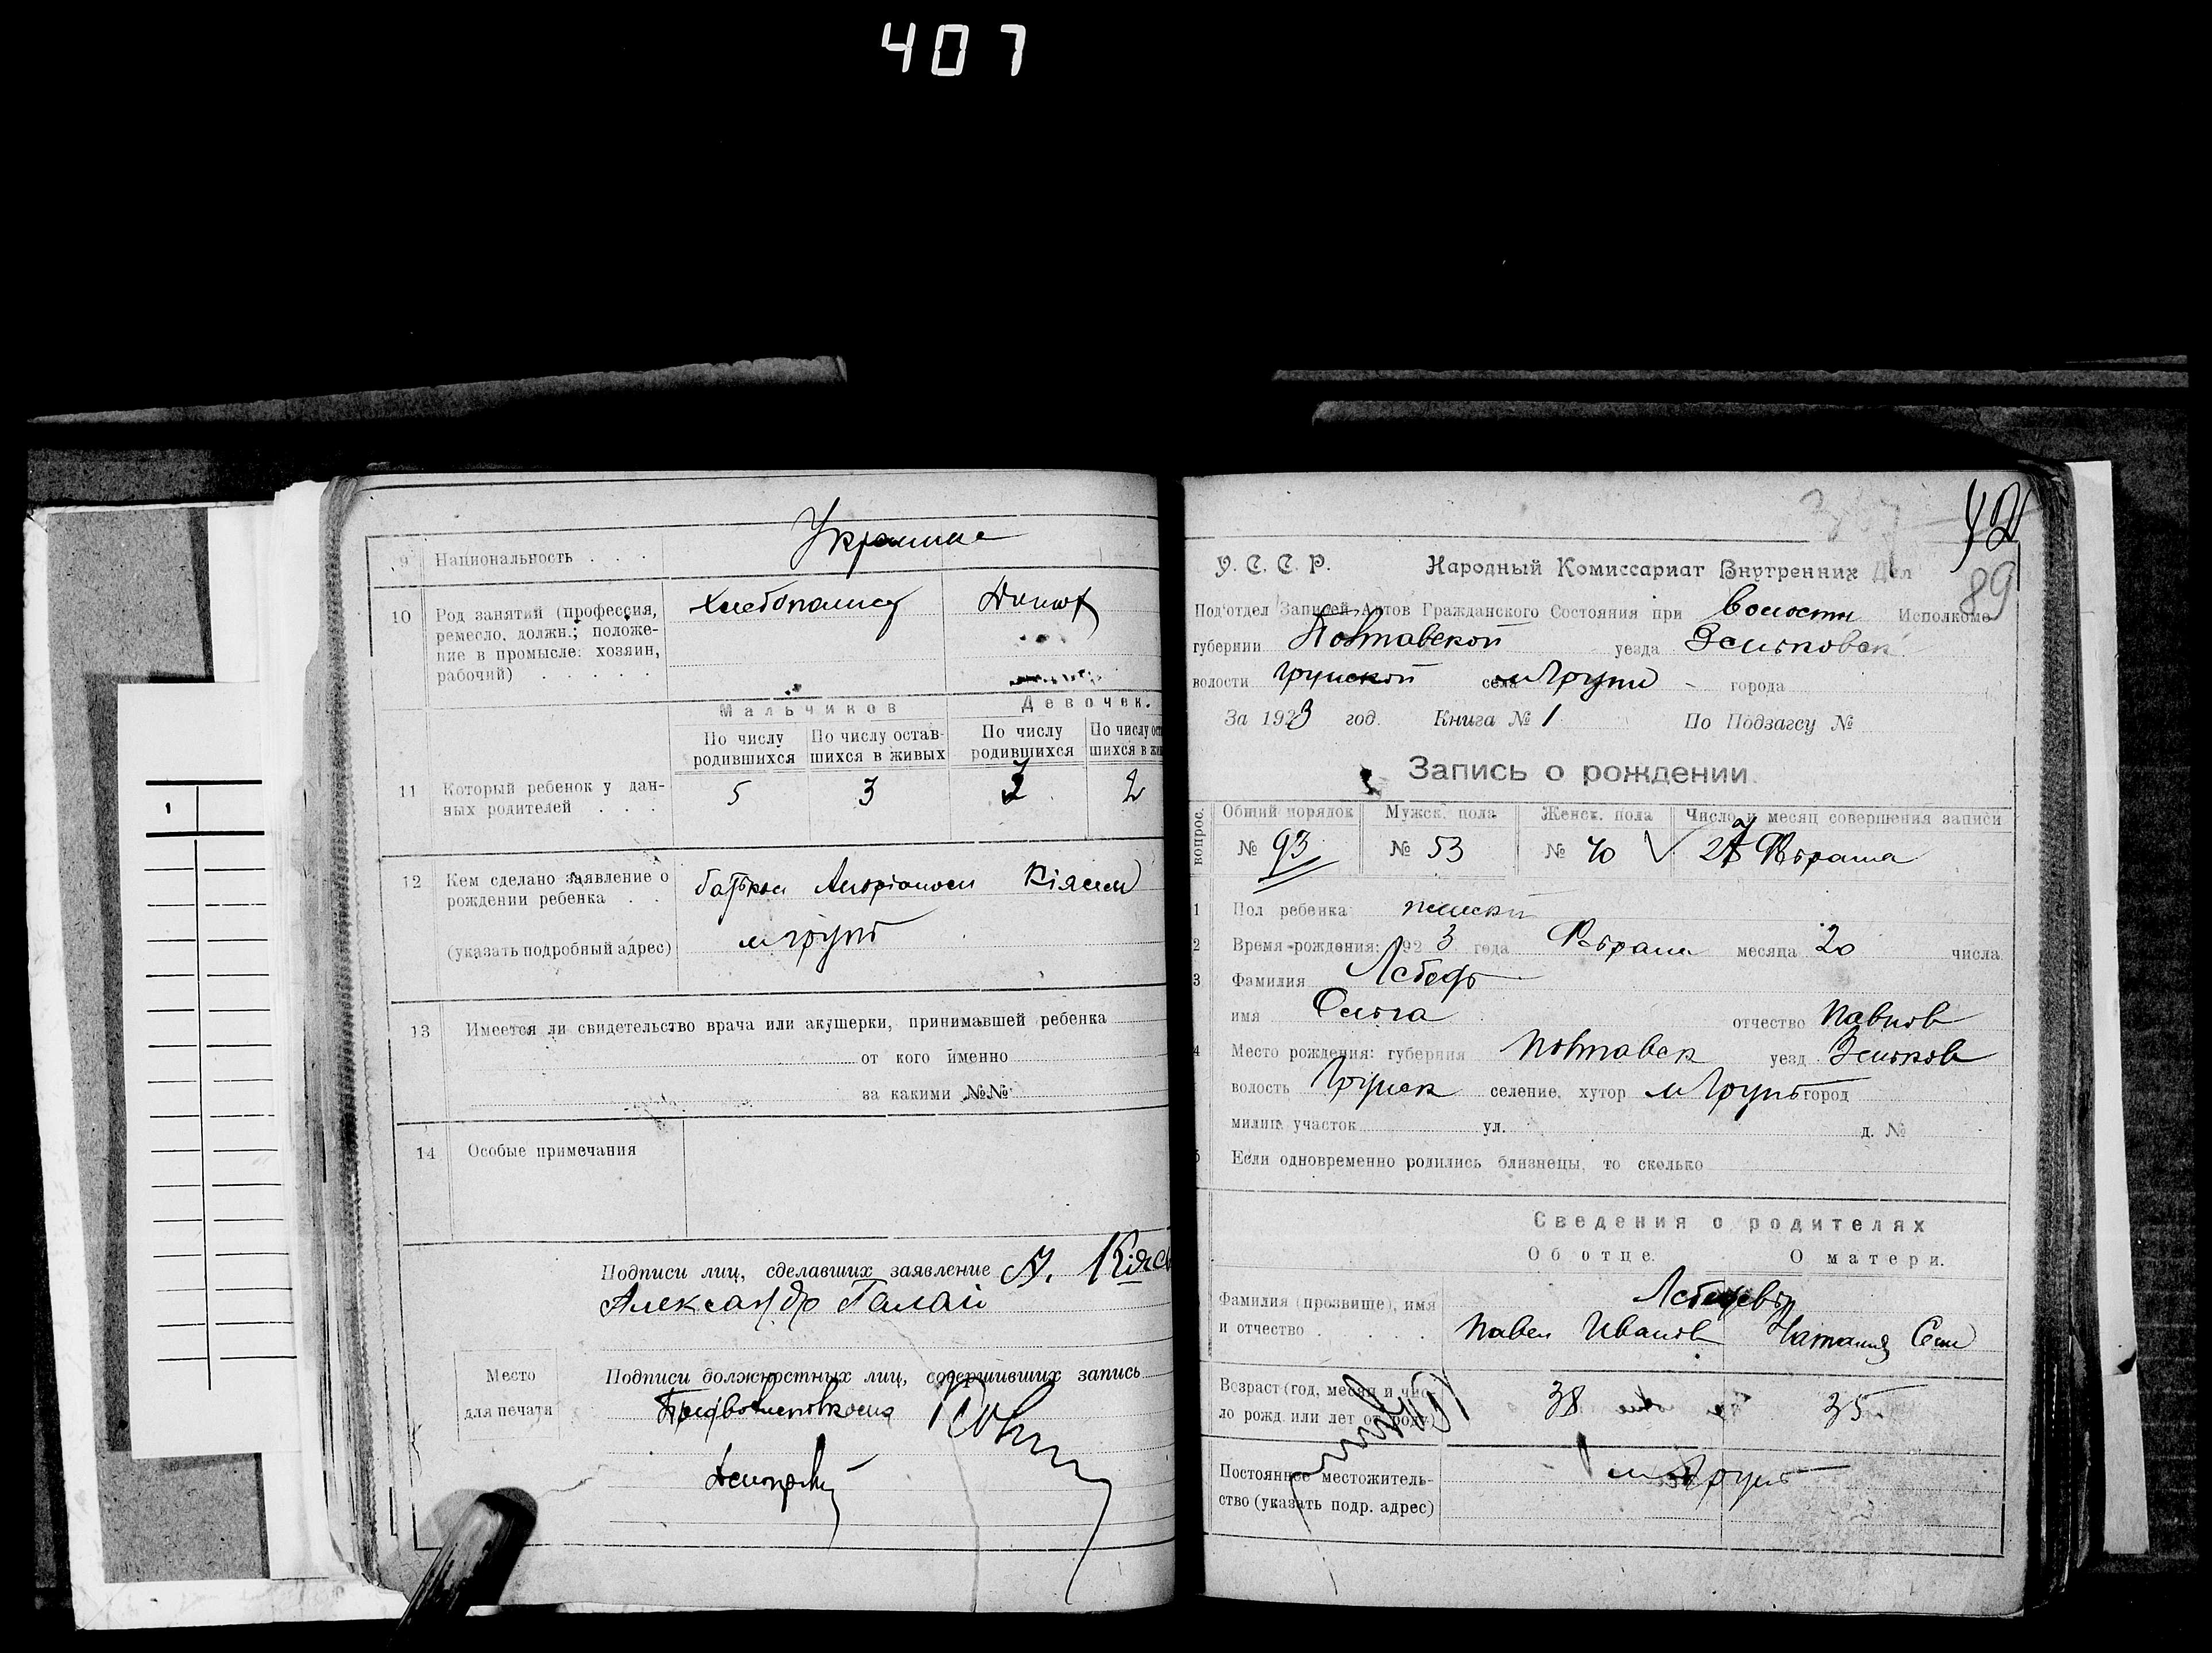 407
9 Национальность . . . Украинце
10 Род занятий (профессия, ремесло, должн.; положение в промысле: хозяин, рабочий) . . . . .
хлебопашец
Мальчиков
Девочек.
По числу родившихся
По числу оставшихся в живых
По числу родившихся
По числу ост
шихся в жи
11 Который ребенок у данных родителей . . .
5 3 3 2
12 Кем сделано заявление о рождении ребенка . .
батьком Киясем
(указать подробный адрес)
м Грунь
13 Имеется ли свидетельство врача или акушерки, принимавшей ребенка
от кого именно
за какими №№
14 Особые примечания
Подписи лиц, сделавших заявление А. Кіяс
Александр Галай
Место для печати
Подписи должностных лиц, совершивших запись
42
89
У. С. С. Р. Народный Комиссариат Внутренних Дел
Под'отдел Записей Актов Гражданского Состояния при волостн Исполкоме
губернии Полтавской уезда Зеньковск
волости Грунской села м Груни города
За 1923 год. Книга № 1 По Подзагсу №
Запись о рождении.
вопрос.
Общий порядок
Мужск. пола
Женск. пола
Число и месяц совершения записи
№ 93 № 53 № 40 27 Февраля
1 Пол ребенка женский
2 Время рождения: 1923 года Февраля месяца 20 числа
3 Фамилия Лебедь
имя Ольга отчество Павлов
4 Место рождения: губерния Полтавск уезд Зеньков
волость Грунск селение, хутор м Грунь город
милиц. участок ул. д. №
5 Если одновременно родились близнецы, то сколько
Сведения о родителях
Об отце. О матери.
Фамилия (прозвище), имя и отчество . . . .
Лебедевы
Павел Иванов Наталия Сем
Возраст (год, месяц и число рожд. или лет от роду)
38 35
Постоянное местожительство (указать подр. адрес)
м Грунь